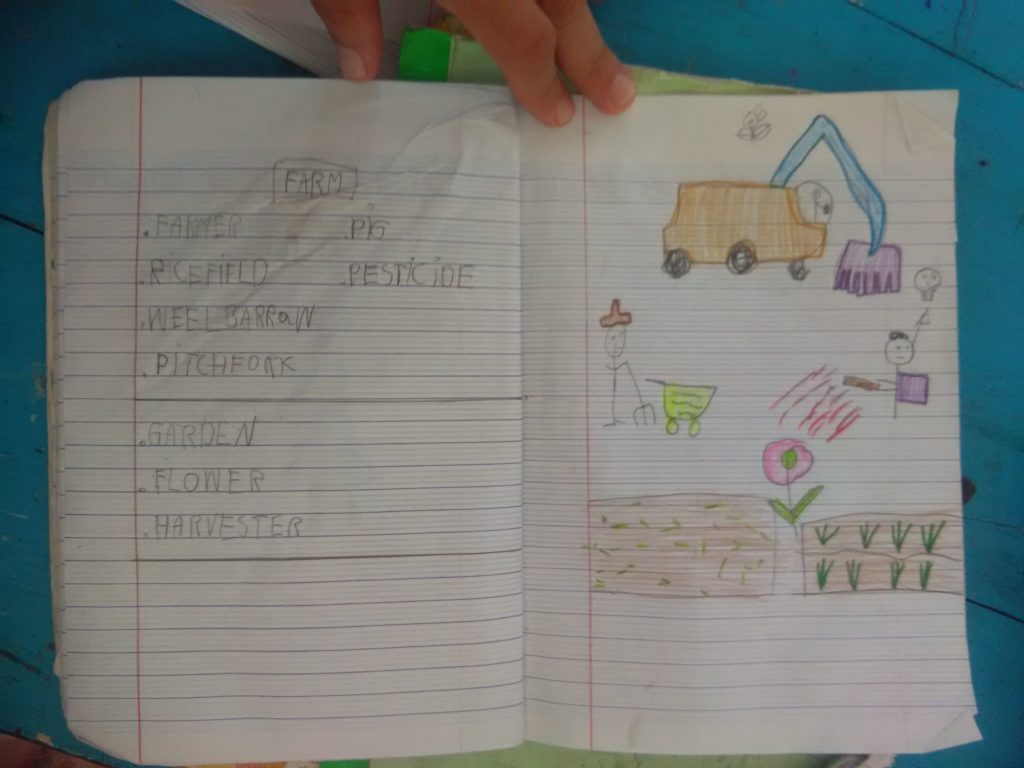 FARM
.FARMER .PIG
.RICEFIELD .PESTICIDE
.WEELBARRaW
.PITCHFORK
.GARDEN
.FLOWER
.HARVESTER